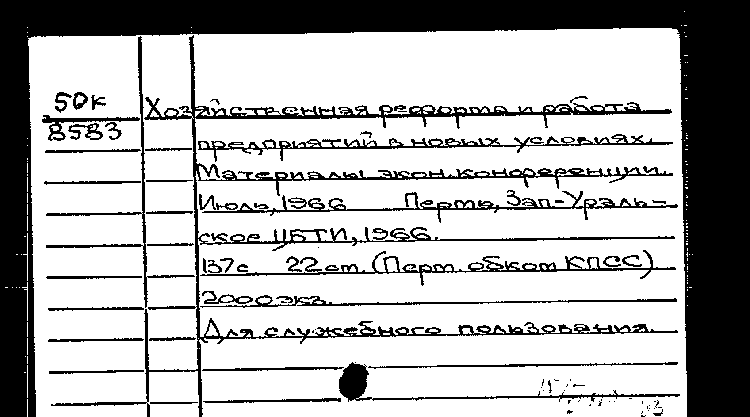 50к
8583
Хозяйственная реформа и работа
предприятий в новых условиях.
Материалы экон. конференции.
Июль, 1966 Пермь, Зап-Ураль-
ское ЦБТИ, 1966.
137с 22см. (Перм. обком КПСС)
2000экз.
Для служебного пользования.